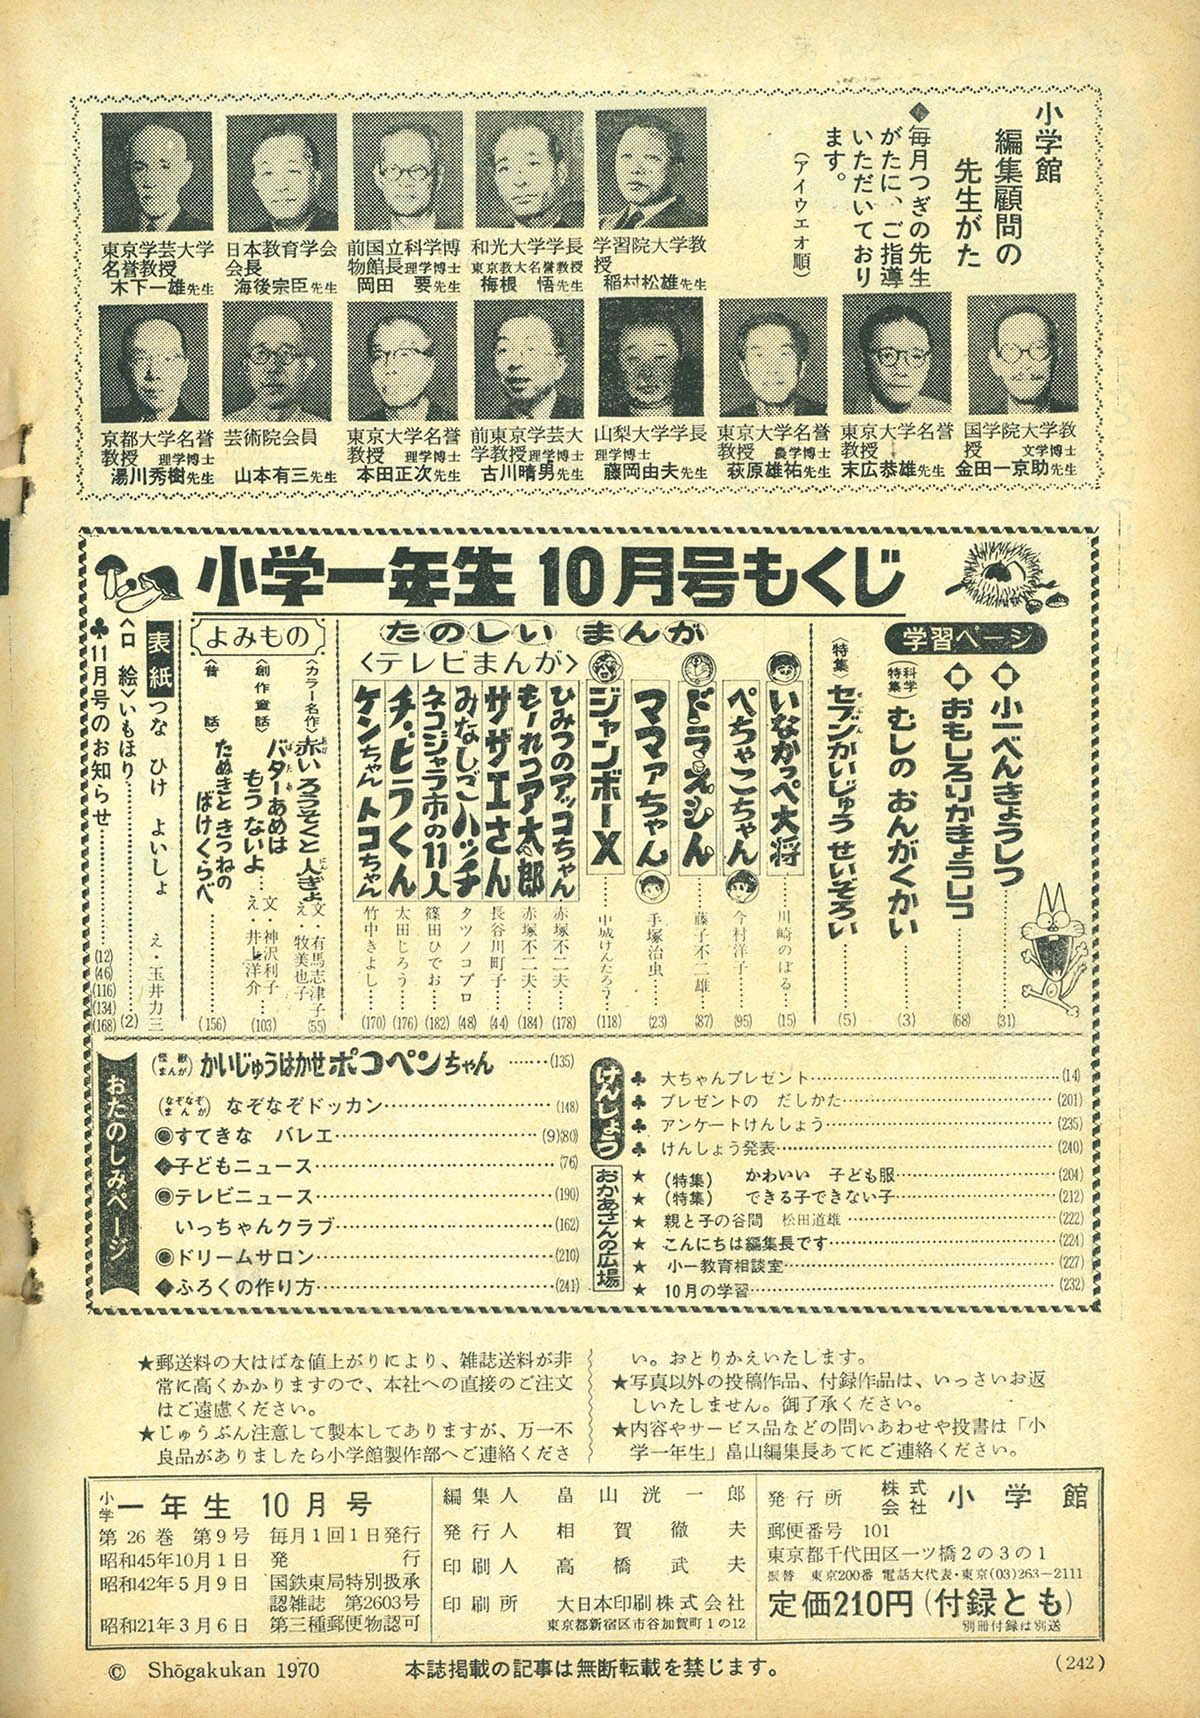 小学館
編集顧問の
先生がた
◆毎月つぎの先生
がたに、ご指導
いただいており
ます。
(アイウエオ順)
学習院大学教
授
稲村松雄先生
和光大学学長
東京教大名誉教授
梅根 悟先生
前国立科学博
物館長 理学博士
岡田 要先生
日本教育学会
会長
海後宗臣先生
東京学芸大学
名誉教授
木下一雄先生
国学院大学教
授 文学博士
金田一京助先生
東京大学名誉
教授
末広恭雄先生
東京大学名誉
教授 農学博士
萩原雄祐先生
山梨大学学長
理学博士
藤岡由夫先生
前東京学芸大
学教授 理学博士
古川晴男先生
東京大学名誉
教授 理学博士
本田正次先生
芸術院会員
山本有三先生
京都大学名誉
教授 理学博士
湯川秀樹先生
小学一年生10月号もくじ
学習ページ
■小一べんきょうしつ……(31)
■おもしろりかきょうしつ……(68)
(科学特集)むしの おんがくかい……(3)
〈特集〉セブンかいじゅう せいぞろい……(5)
たのしい まんが
いなかっぺ大将……川崎のぼる…(15)
ぺちゃこちゃん……今村洋子…(95)
ドラえもん……藤子不二雄…(87)
ママァちゃん……手塚治虫…(23)
ジャンボーX……中城けんたろう…(118)
〈テレビまんが〉
ひみつのアッコちゃん 赤塚不二夫…(178)
もーれつア太郎 赤塚不二夫…(184)
サザエさん 長谷川町子…(44)
みなしごハッチ タツノコプロ(48)
ネコジャラ市の11人 篠田ひでお…(182)
チ・ビラくん 太田じろう…(176)
ケンちゃんトコちゃん 竹中きよし…(170)
よみもの
〈カラー名作〉赤いろうそくと 人ぎょ 文・有馬志津子 え・牧美也子(55)
〈創作童話〉バターあめは
もう ないよ… 文・神沢利子 え・井上洋介(103)
〈昔話〉たぬきと きつねの
ばけくらべ……(156)
表紙 つな ひけ よいしょ え・玉井力三
〈口絵〉いもほり……(2)
♣11月号のお知らせ……(12)(46)(116)(134)(168)
おたのしみページ
(怪獣まんが) かいじゅうはかせ ポコペンちゃん……(135)
(なぞなぞまんが) なぞなぞドッカン……(148)
◉すてきな バレエ……(9)(80)
◆子どもニュース……(76)
◉テレビニュース……(190)
いっちゃんクラブ……(162)
◉ドリームサロン……(210)
◆ふろくの作り方……(241)
けんしょう
♣ 大ちゃんプレゼント……(14)
♣ プレゼントの だしかた……(201)
♣ アンケートけんしょう……(235)
♣ けんしょう発表……(240)
おかあさんの広場
★ (特集) かわいい 子ども服……(204)
★ (特集) できる子できない子……(212)
★ 親と子の谷間 松田道雄……(222)
★ こんにちは編集長です……(224)
★ 小一教育相談室……(227)
★ 10月の学習……(232)
★郵送料の大はばな値上がりにより、雑誌送料が非
常に高くかかりますので、本社への直接のご注文
はご遠慮ください。
★じゅうぶん注意して製本してありますが、万一不
良品がありましたら小学館製作部へご連絡くださ
い。おとりかえいたします。
★写真以外の投稿作品、付録作品は、いっさいお返
しいたしません。御了承ください。
★内容やサービス品などの問いあわせや投書は「小
学一年生」畠山編集長あてにご連絡ください。
小学一年生 10月号
第26巻 第9号 毎月1回1日発行
昭和45年10月1日 発行
昭和42年5月9日 国鉄東局特別扱承
認雑誌 第2603号
昭和21年3月6日 第三種郵便物認可
編集人 畠山洸一郎
発行人 相賀徹夫
印刷人 高橋武夫
印刷所 大日本印刷株式会社
東京都新宿区市谷加賀町1の12
発行所 株式会社 小学館
郵便番号 101
東京都千代田区一ツ橋2の3の1
振替 東京200番 電話大代表・東京(03)263-2111
定価210円(付録とも)
別冊付録は別送
© Shōgakukan 1970
本誌掲載の記事は無断転載を禁じます。
(242)